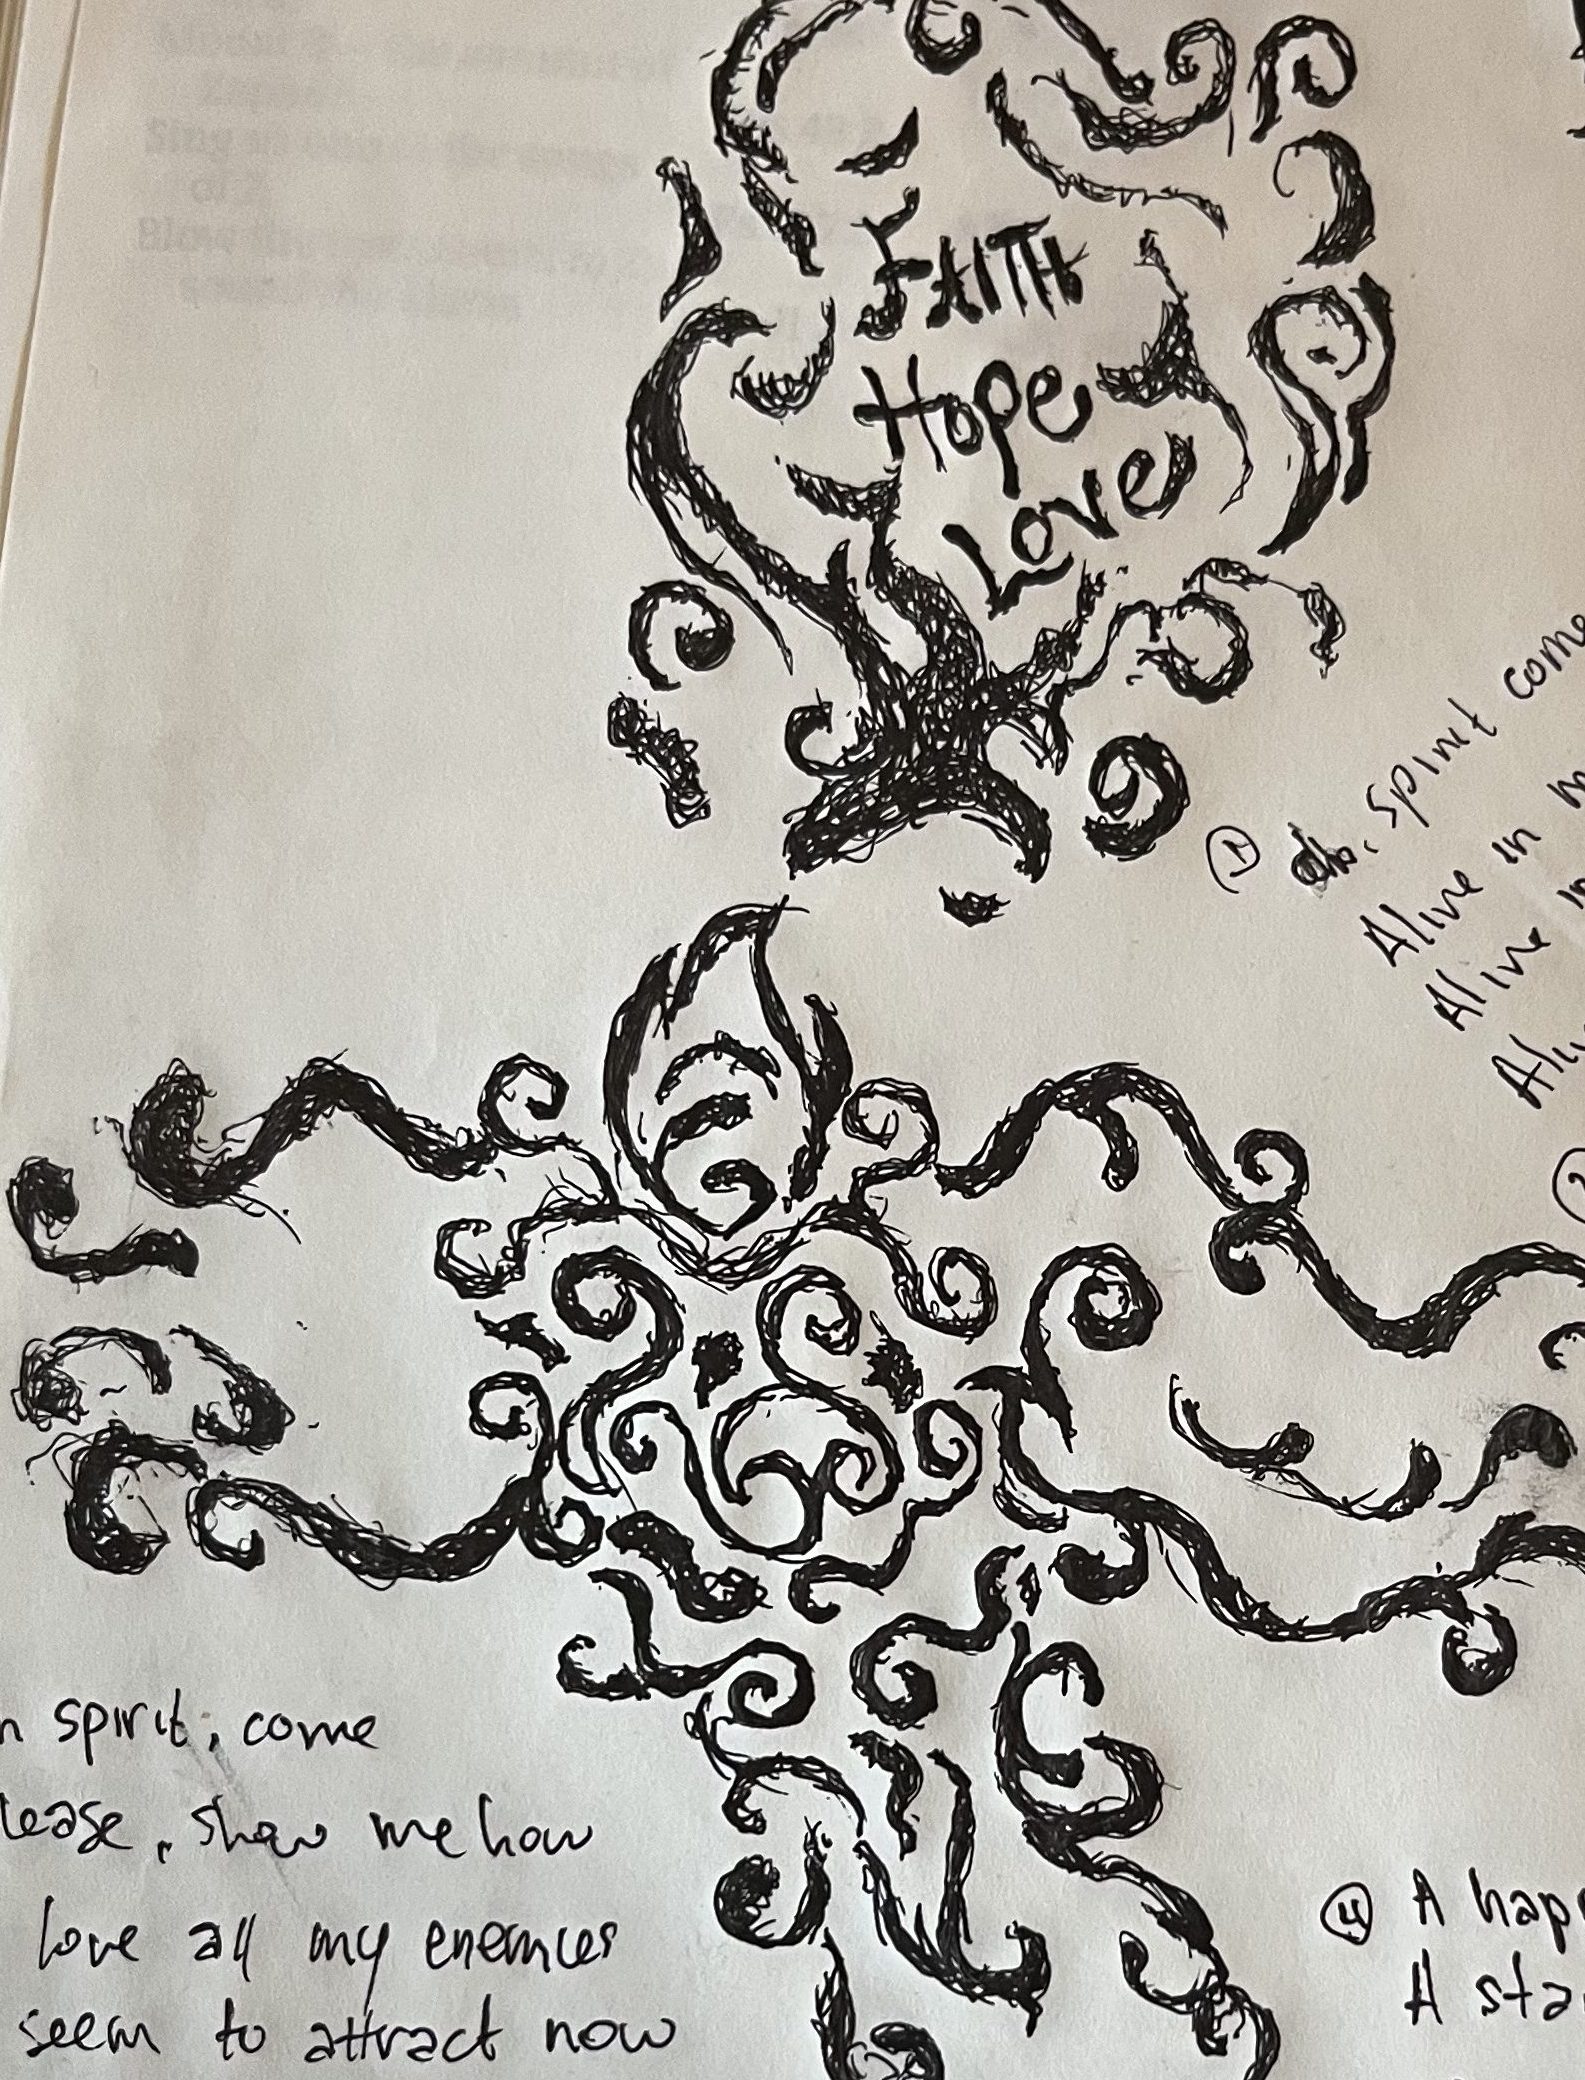 FAITH
Hope
Love
① Oh, spirit come
Alive in
Alive in
spirit, come
lease, show me how
love all my enemies
seem to attract now
④ A hap
A sta